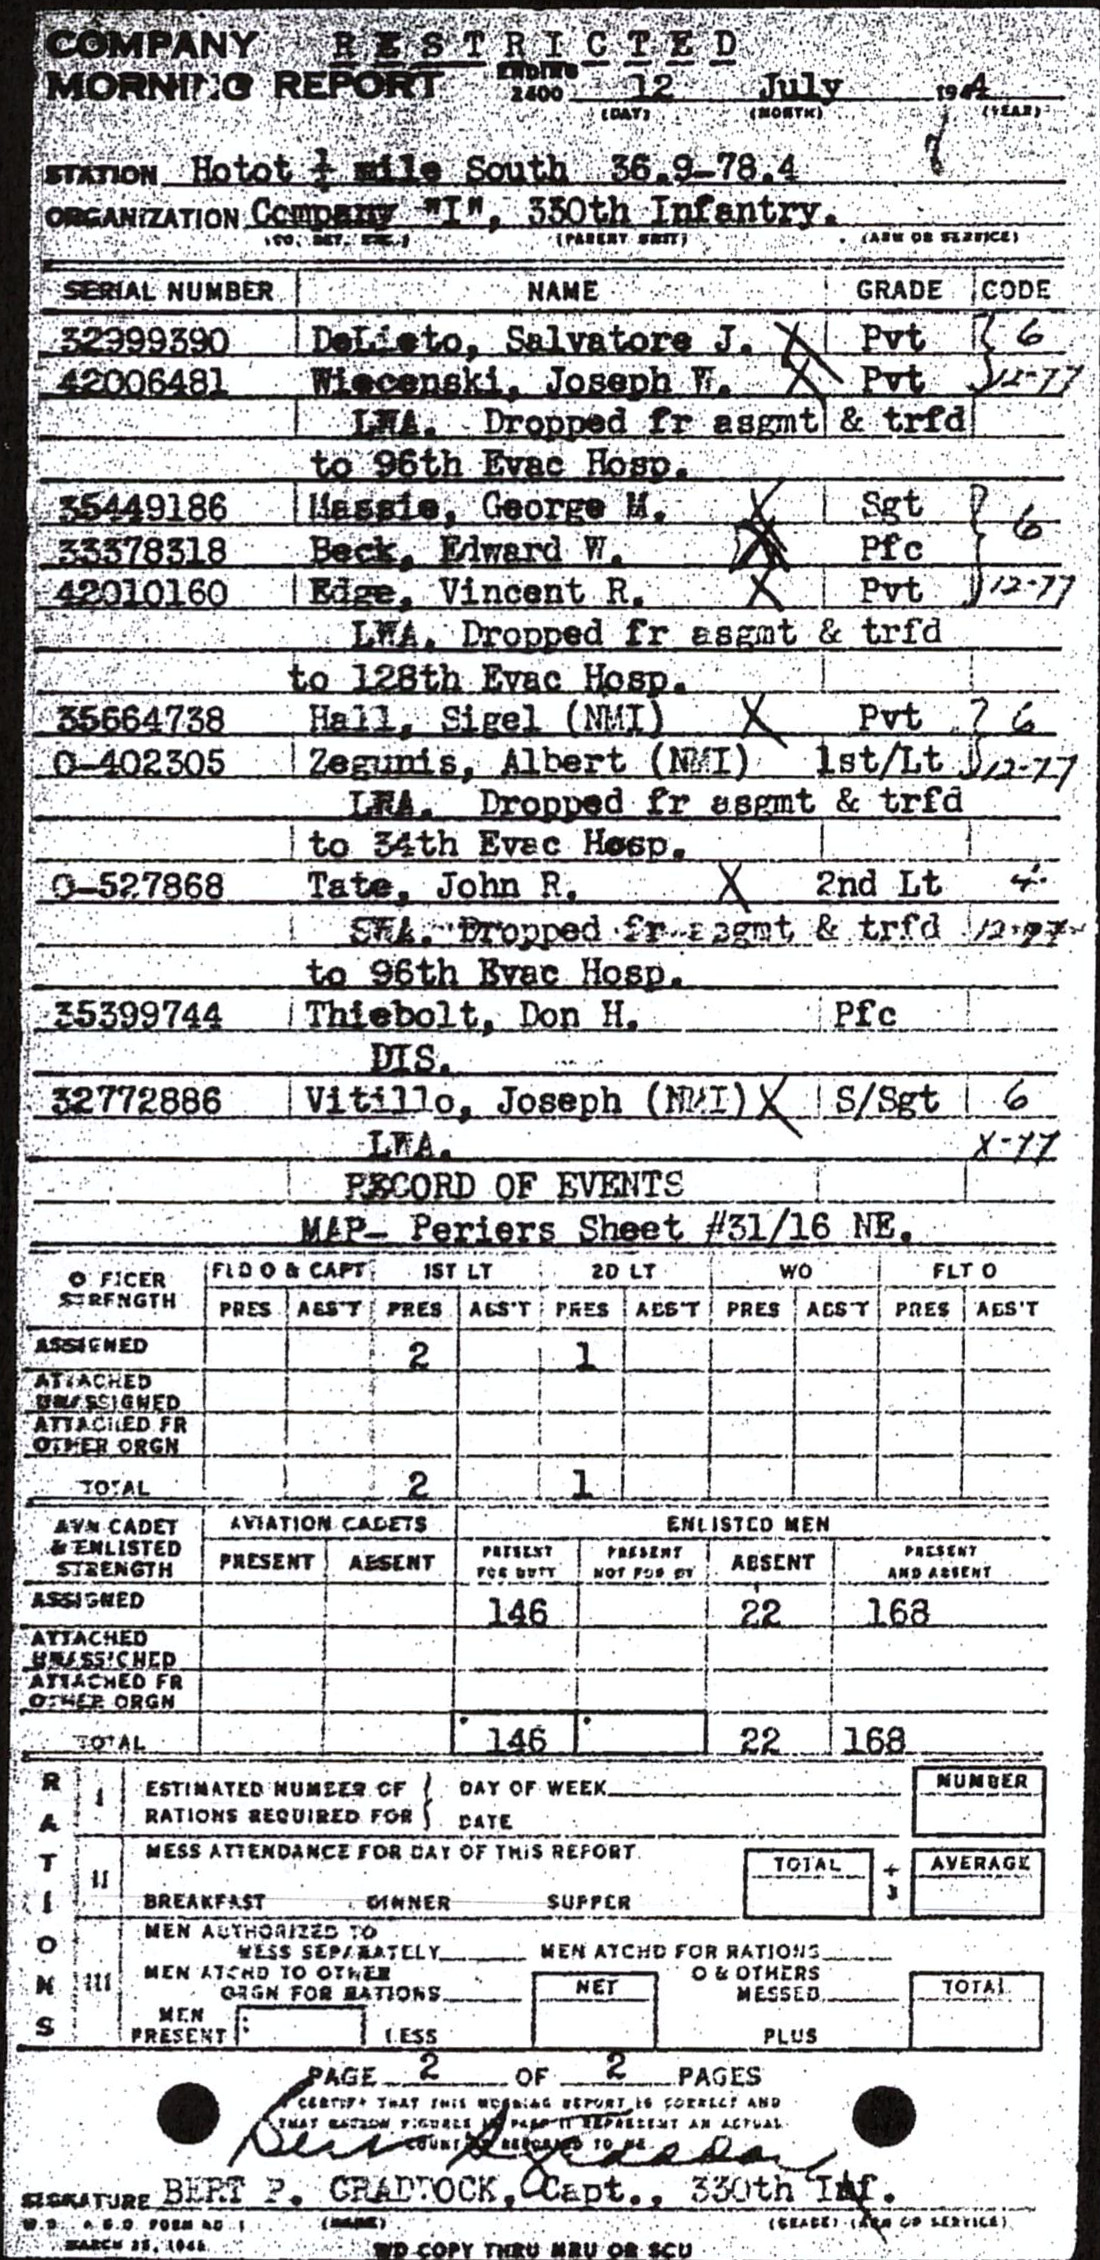 COMPANY RESTRICTED
MORNING REPORT ENDING 2400 12 July 1944
(DAY) (MONTH) (YEAR)
STATION Hotot ½ mile South 36.9-78.4
ORGANIZATION Company "I", 330th Infantry.
(CO, DET, ETC.) (PARENT UNIT) (ARM OR SERVICE)
SERIAL NUMBER NAME GRADE CODE
32999390 DeLieto, Salvatore J. X Pvt 6
42006481 Wiecenski, Joseph W. X Pvt 12-77
LWA. Dropped fr asgmt & trfd
to 96th Evac Hosp.
35449186 Massie, George M. X Sgt
33378318 Beck, Edward W. X Pfc 6
42010160 Edge, Vincent R. X Pvt 12-77
LWA. Dropped fr asgmt & trfd
to 128th Evac Hosp.
35664738 Hall, Sigel (NMI) X Pvt 6
O-402305 Zegunis, Albert (NMI) 1st/Lt 12-77
LWA. Dropped fr asgmt & trfd
to 34th Evac Hosp.
O-527868 Tate, John R. X 2nd Lt 4
SWA. Dropped fr asgmt & trfd
to 96th Evac Hosp.
35399744 Thiebolt, Don H. Pfc
DIS.
32772886 Vitillo, Joseph (NMI) X S/Sgt 6
LWA. X-77
RECORD OF EVENTS
MAP- Periers Sheet #31/16 NE.
OFFICER STRENGTH FLD O & CAPT 1ST LT 2D LT WO FLT O
PRES ABS'T PRES ABS'T PRES ABS'T PRES ABS'T PRES ABS'T
ASSIGNED 2 1
ATTACHED UNASSIGNED
ATTACHED FR OTHER ORGN
TOTAL 2 1
AVN CADET & ENLISTED STRENGTH AVIATION CADETS ENLISTED MEN
PRESENT ABSENT PRESENT FOR DUTY PRESENT NOT FOR DY ABSENT PRESENT AND ABSENT
ASSIGNED 146 22 168
ATTACHED UNASSIGNED
ATTACHED FR OTHER ORGN
TOTAL 146 22 168
RATIONS
I ESTIMATED NUMBER OF DAY OF WEEK NUMBER
RATIONS REQUIRED FOR DATE
II MESS ATTENDANCE FOR DAY OF THIS REPORT TOTAL ÷ 3 AVERAGE
BREAKFAST DINNER SUPPER
III MEN AUTHORIZED TO
MESS SEPARATELY MEN ATCHD FOR RATIONS
MEN ATCHD TO OTHER O & OTHERS
ORGN FOR RATIONS NET MESSED TOTAL
MEN PRESENT LESS PLUS
PAGE 2 OF 2 PAGES
I CERTIFY THAT THIS MORNING REPORT IS CORRECT AND
THAT RATION FIGURES IN PART II REPRESENT AN ACTUAL
COUNT AS REPORTED TO ME
SIGNATURE BERT P. CRADDOCK, Capt., 330th Inf.
W.D. A.G.O. FORM NO. 1 (NAME) (GRADE) (ARM OR SERVICE)
WD COPY THRU MRU OR SCU